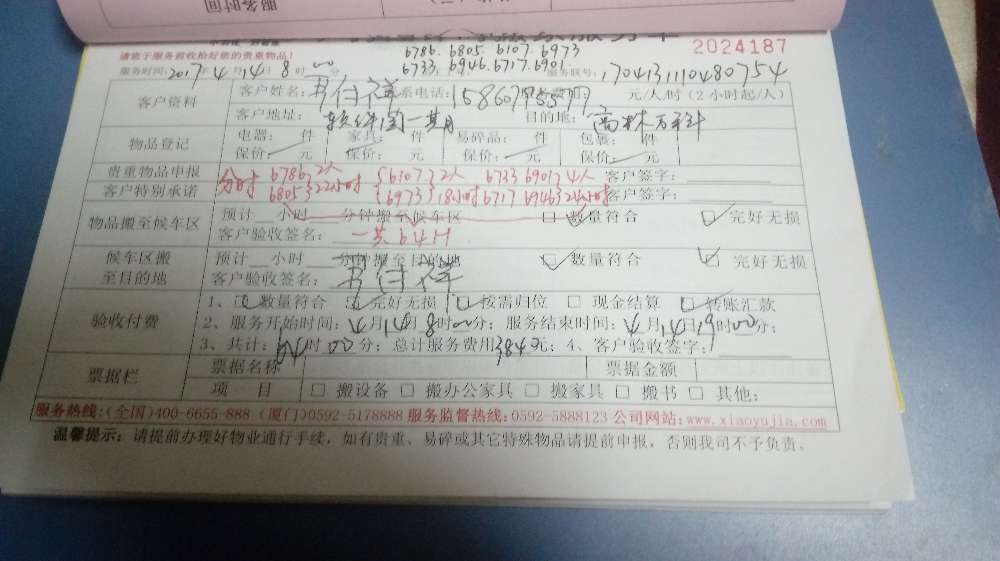 服务时间
2024187
请您于服务前收拾好您的贵重物品!
6786. 6805. 6107. 6973
6733. 6946. 6717. 6901.
服务时间: 2017年4月14日8时00分
服务联号: 170413111048 0754
客户资料
客户姓名:
联系电话:
元/人/时 (2小时起/人)
客户地址: 软件园一期
目的地: 高林万科
物品登记
电器: 件 家具: 件 易碎品: 件 包裹: 件
保价: 元 保价: 元 保价: 元 保价: 元
贵重物品申报
客户签字:
客户特别承诺
客户签字:
分时 6786 2人 6107 2人 6733 6901 4人
6805 22小时 6973 18小时 6717 6946 24小时
物品搬至候车区
预计__小时__分钟搬至候车区 □ 数量符合 □ 完好无损
客户验收签名: 一共64H
候车区搬至目的地
预计__小时__分钟搬至目的地 □ 数量符合 □ 完好无损
客户验收签名:
验收付费
1、□ 数量符合 □ 完好无损 □ 按需归位 □ 现金结算 □ 转账汇款
2、服务开始时间: 4月14日8时00分; 服务结束时间: 4月14日19时00分;
3、共计: 64时00分; 总计服务费用3840元; 4、客户验收签字:
票据栏
票据名称 票据金额
项 目 □ 搬设备 □ 搬办公家具 □ 搬家具 □ 搬书 □ 其他:
服务热线:(全国)400-6655-888 (厦门)0592-5178888 服务监督热线:0592-5888123 公司网站:www.xiaoyujia.com
温馨提示: 请提前办理好物业通行手续, 如有贵重、易碎或其它特殊物品请提前申报, 否则我司不予负责。